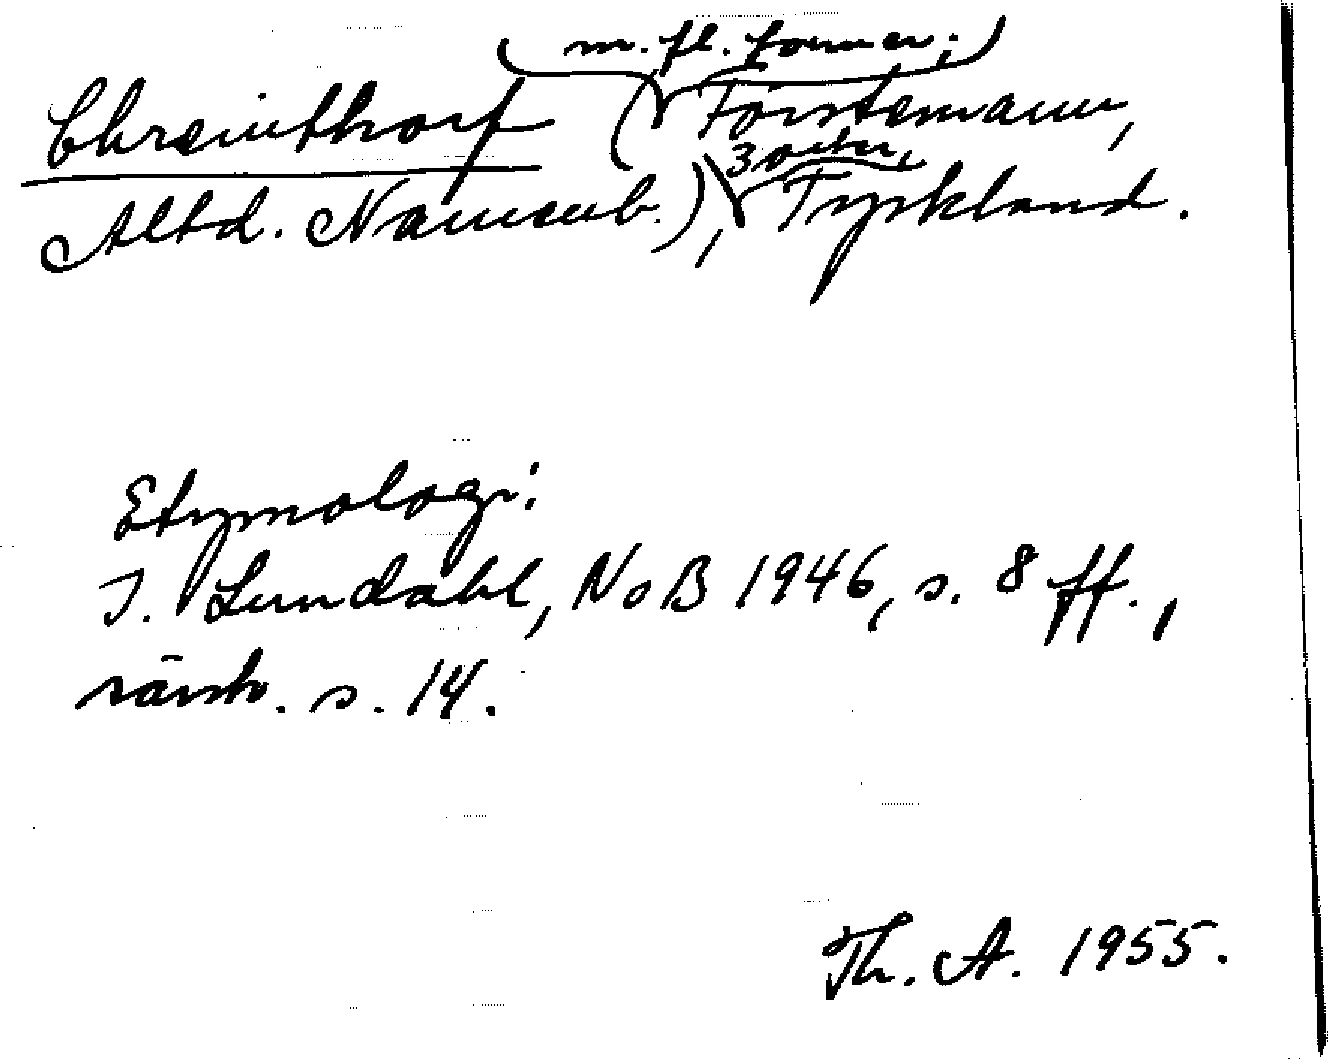 m. fl. former;
Chreinthorf (Förstemann,
3 orter,
Altd. Namenb.), Tyskland.
Etymologi:
I. Lundahl, NoB 1946, s. 8 ff.,
särsk. s. 14.
Th. A. 1955.